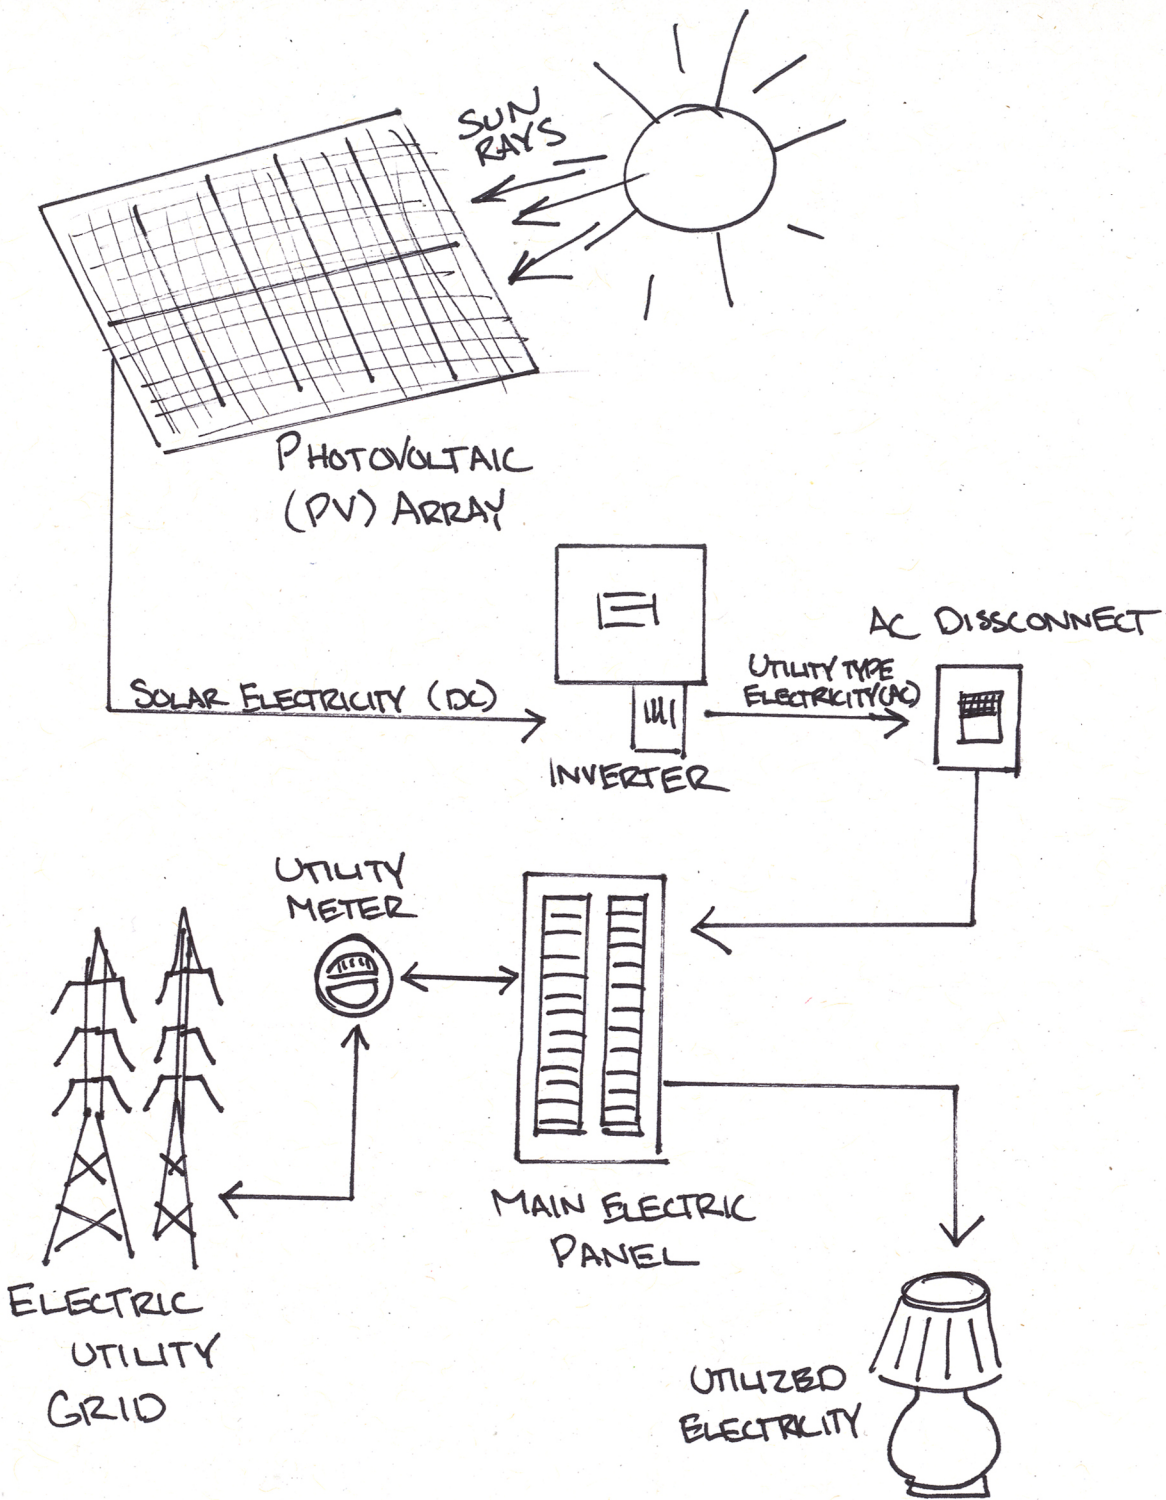 SUN
RAYS
PHOTOVOLTAIC
(PV) ARRAY
SOLAR ELECTRICITY (DC)
INVERTER
UTILITY TYPE
ELECTRICITY (AC)
AC DISSCONNECT
UTILITY
METER
MAIN ELECTRIC
PANEL
ELECTRIC
UTILITY
GRID
UTILIZED
ELECTRICITY